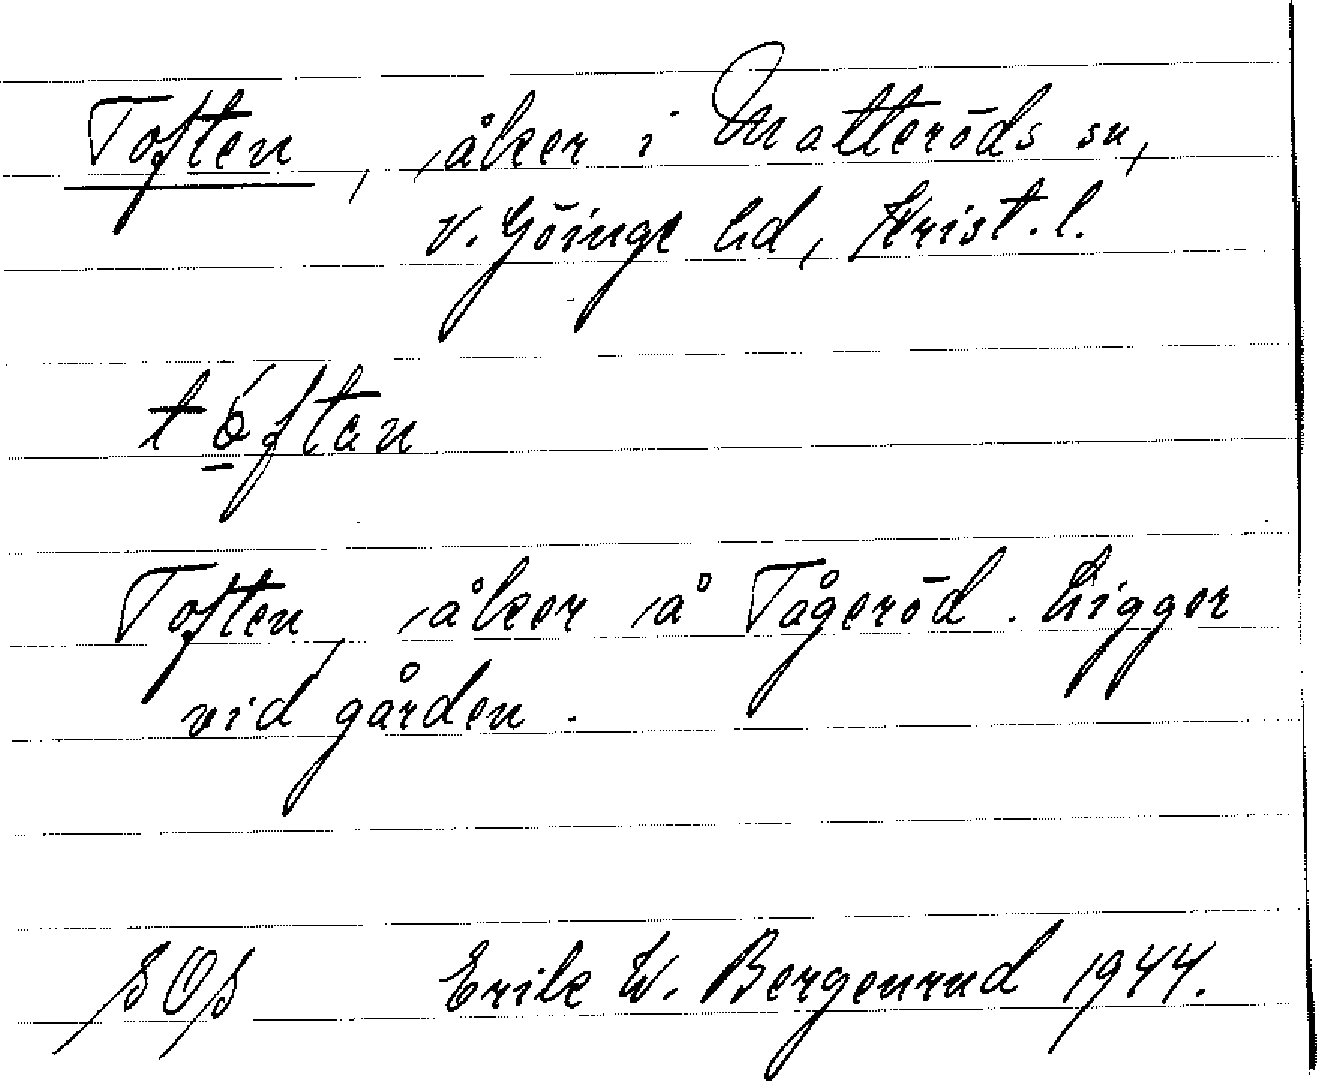 Toften, åker i Matteröds sn,
V. Göinge hd, Krist. l.
tóftan
Toften, åker å Tågeröd. Ligger
vid gården.
sOs Erik W. Bergenrud 1944.